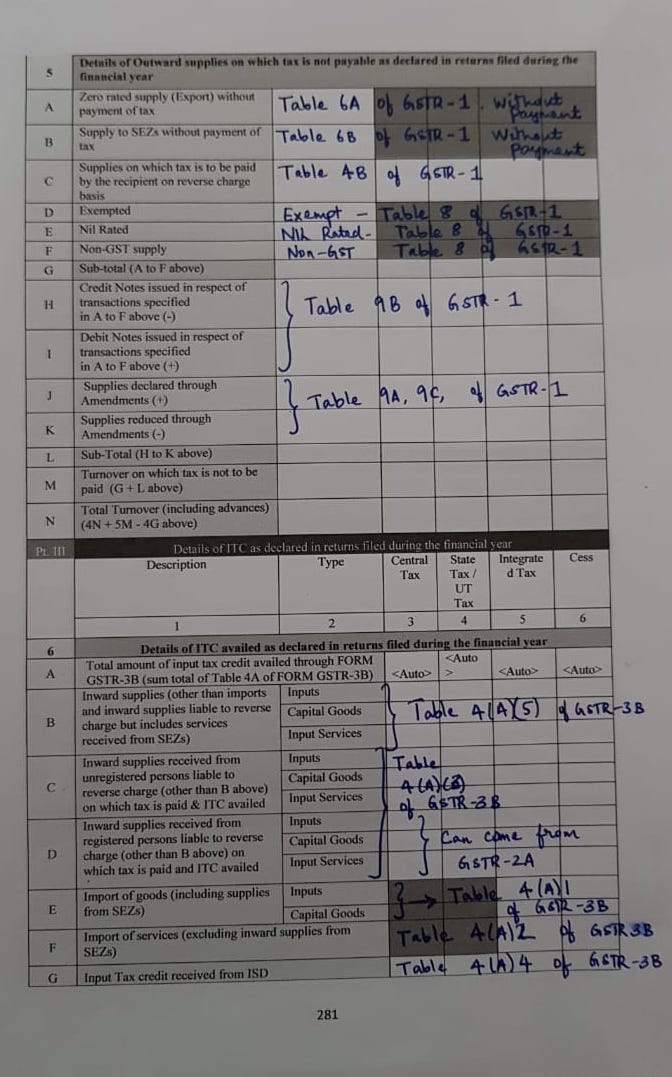 5 Details of Outward supplies on which tax is not payable as declared in returns filed during the
financial year
A Zero rated supply (Export) without
payment of tax
Table 6A of GSTR-1. Without
Payment
B Supply to SEZs without payment of
tax
Table 6B of GSTR-1 Without
Payment
C Supplies on which tax is to be paid
by the recipient on reverse charge
basis
Table 4B of GSTR-1
D Exempted Exempt - Table 8 of GSTR-1
E Nil Rated NIL Rated - Table 8 of GSTR-1
F Non-GST supply Non-GST Table 8 of GSTR-1
G Sub-total (A to F above)
H Credit Notes issued in respect of
transactions specified
in A to F above (-)
Table 9B of GSTR-1
I Debit Notes issued in respect of
transactions specified
in A to F above (+)
J Supplies declared through
Amendments (+)
Table 9A, 9C, of GSTR-1
K Supplies reduced through
Amendments (-)
L Sub-Total (H to K above)
M Turnover on which tax is not to be
paid (G + L above)
N Total Turnover (including advances)
(4N + 5M - 4G above)
Pt. III Details of ITC as declared in returns filed during the financial year
Description Type Central
Tax
State
Tax /
UT
Tax
Integrate
d Tax
Cess
1 2 3 4 5 6
6 Details of ITC availed as declared in returns filed during the financial year
A Total amount of input tax credit availed through FORM
GSTR-3B (sum total of Table 4A of FORM GSTR-3B)
<Auto> <Auto
> <Auto> <Auto>
B Inward supplies (other than imports
and inward supplies liable to reverse
charge but includes services
received from SEZs)
Inputs
Capital Goods
Input Services
Table 4(A)(5) of GSTR-3B
C Inward supplies received from
unregistered persons liable to
reverse charge (other than B above)
on which tax is paid & ITC availed
Inputs
Capital Goods
Input Services
Table
4(A)(3)
of GSTR-3B
D Inward supplies received from
registered persons liable to reverse
charge (other than B above) on
which tax is paid and ITC availed
Inputs
Capital Goods
Input Services
Can come from
GSTR-2A
E Import of goods (including supplies
from SEZs)
Inputs
Capital Goods
Table 4(A)1
of GSTR-3B
F Import of services (excluding inward supplies from
SEZs)
Table 4(A)2 of GSTR3B
G Input Tax credit received from ISD
Table 4(A)4 of GSTR-3B
281